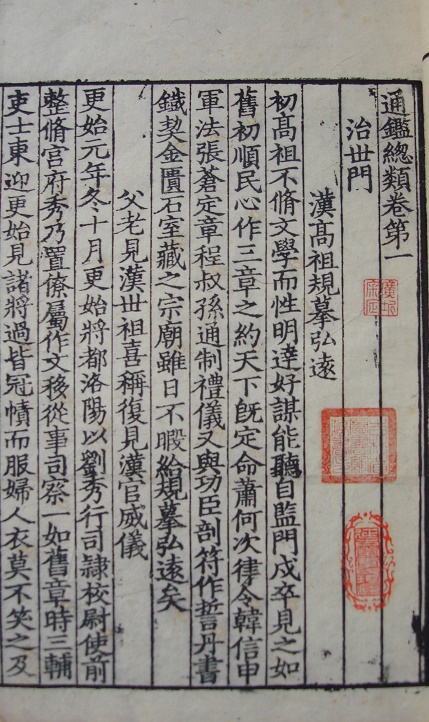 通鑑總類卷第一
治世門
漢髙祖規摹弘遠
初髙祖不脩文學而性明達好謀能聽自監門戍卒見之如
舊初順民心作三章之約天下旣定命蕭何次律令韓信申
軍法張蒼定章程叔孫通制禮儀又與功臣剖符作誓丹書
鐵契金匱石室藏之宗廟雖日不暇給規摹弘遠矣
父老見漢世祖喜稱復見漢官威儀
更始元年冬十月更始將都洛陽以劉秀行司隷校尉使前
整脩官府秀乃置僚屬作文移從事司察一如舊章時三輔
吏士東迎更始見諸將過皆冠幘而服婦人衣莫不笑之及